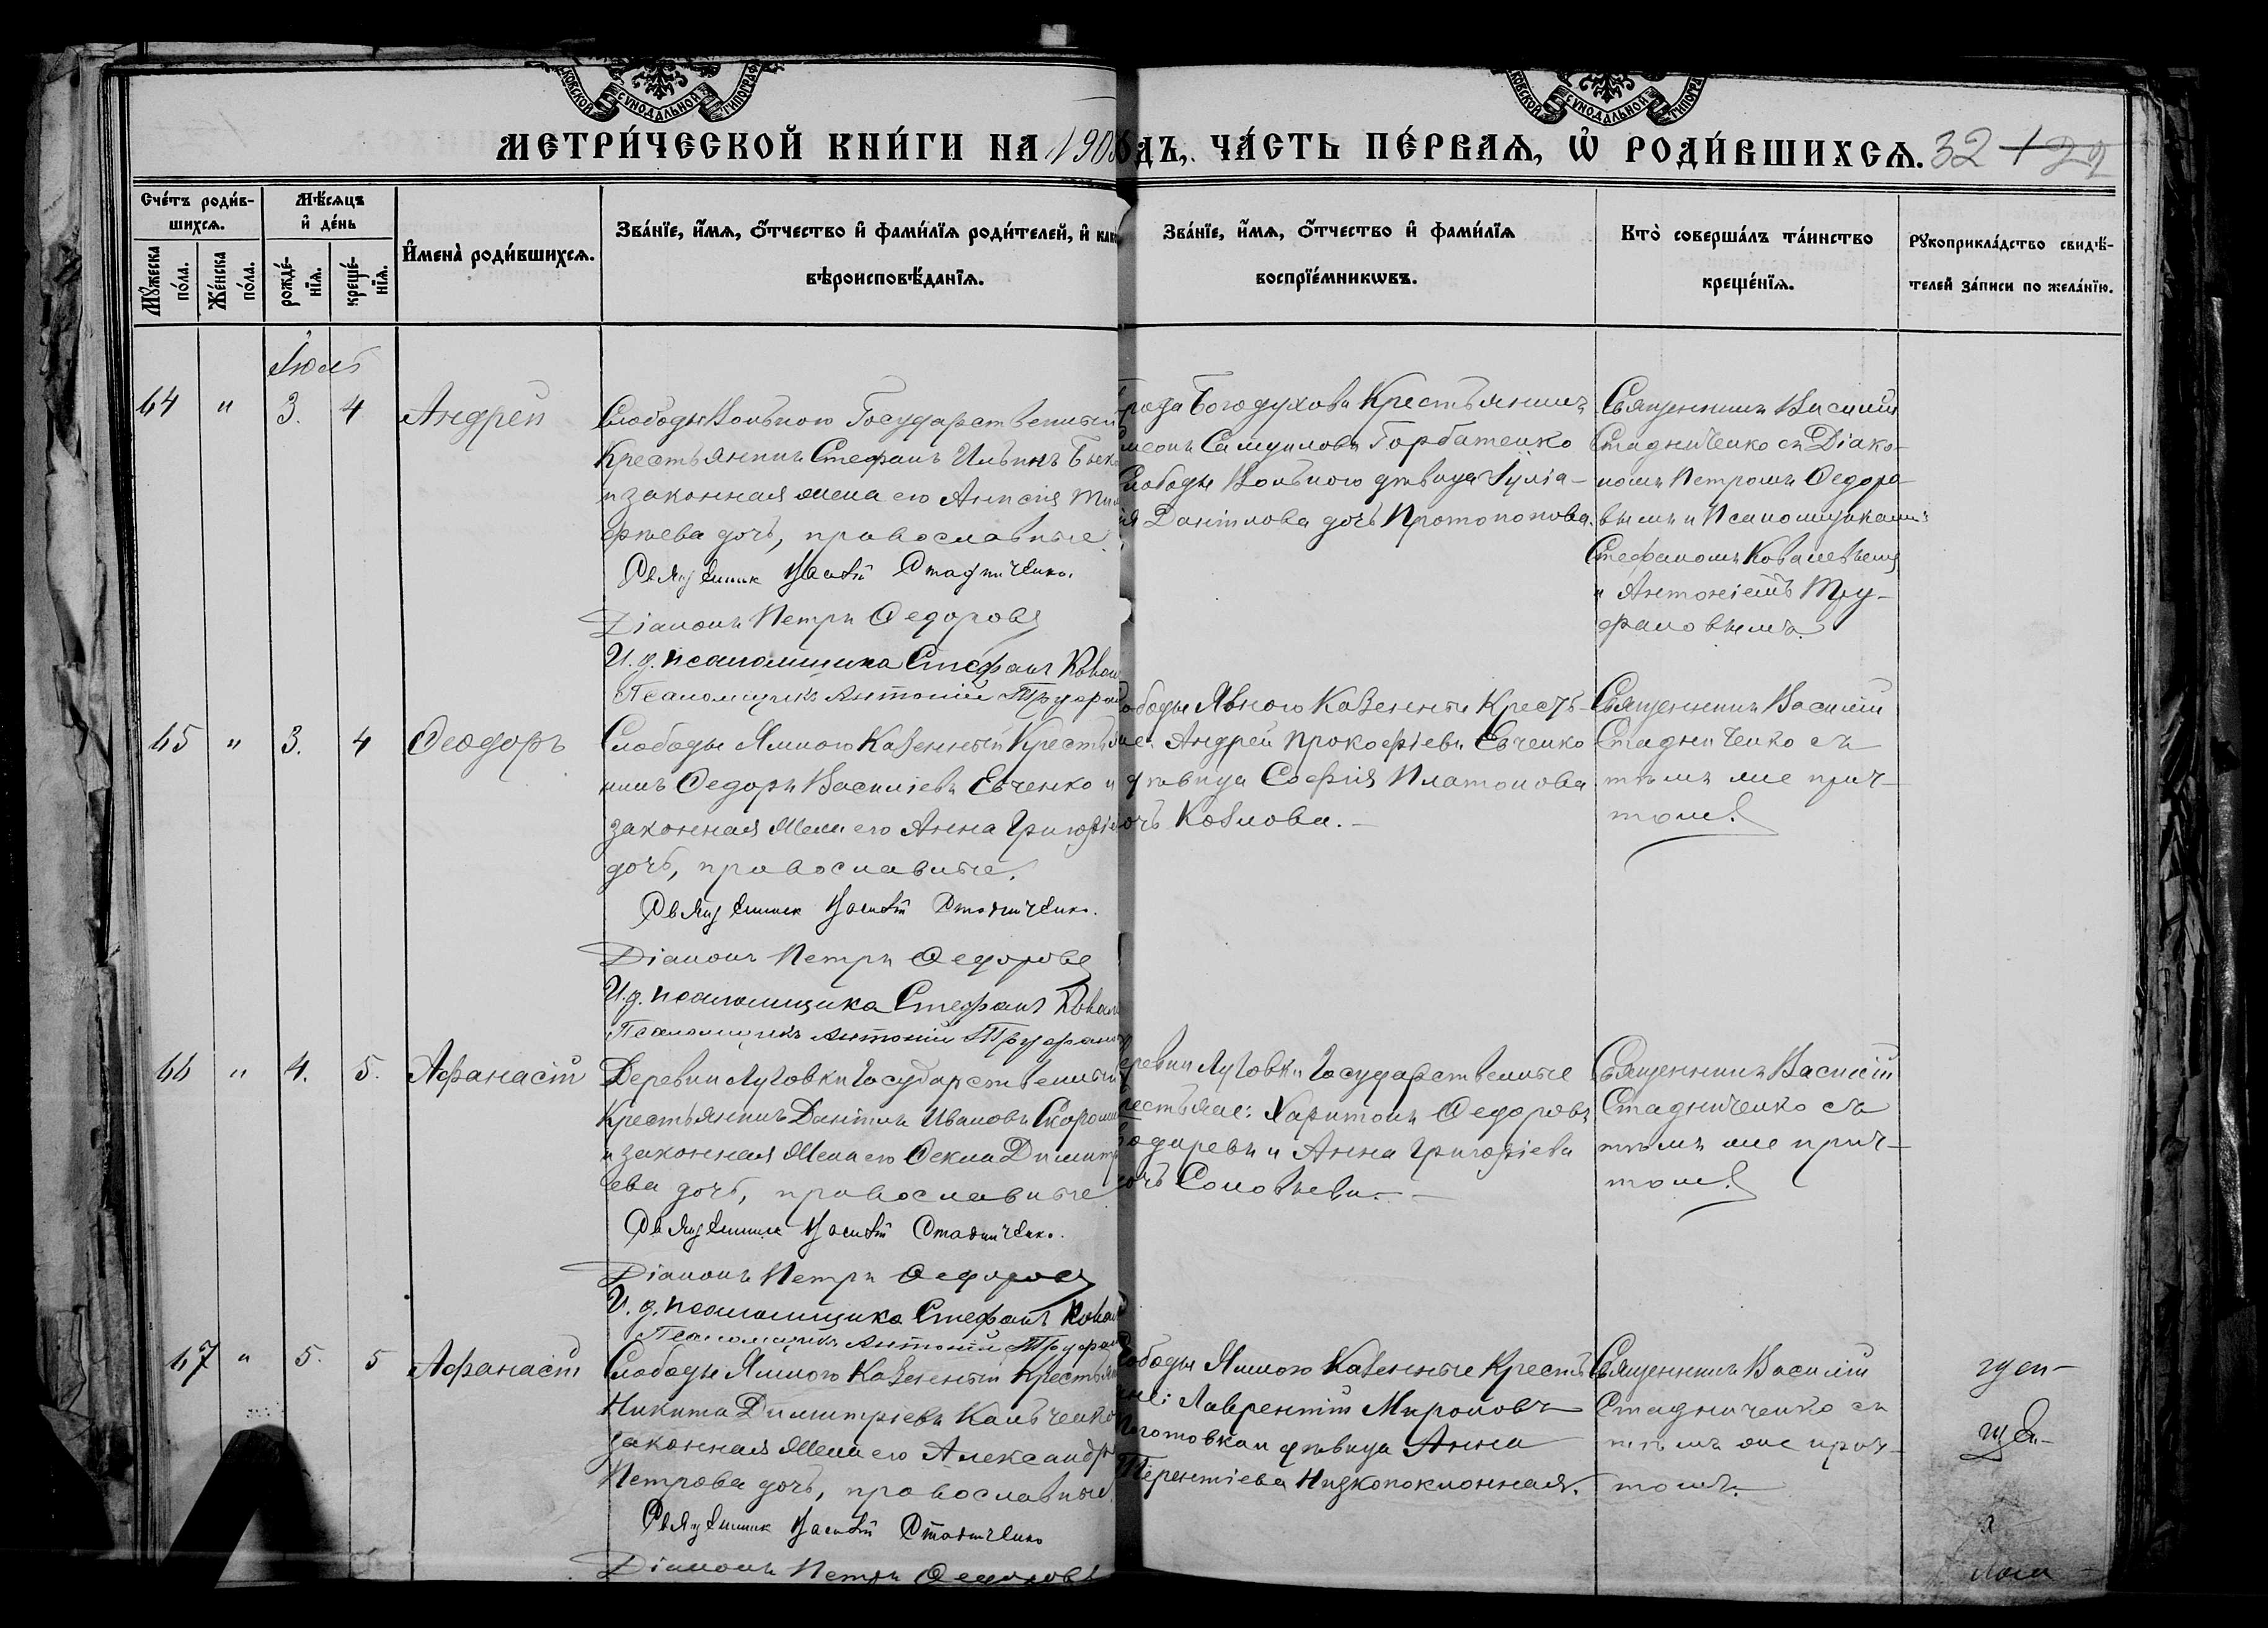 КОВСКОЙ СѴНОДАЛЬНОЙ ТИПОГРАФ
КОВСКОЙ СѴНОДАЛЬНОЙ ТИПОГРАФ
МЕТРИ́ЧЕСКОЙ КНИ́ГИ НА 190 ДЪ, ЧА́СТЬ ПЕ́РВАѦ, Ѡ҆ РОДИ́ВШИХСѦ. 32
Счéтъ роди́в-
шихсѧ.
Мꙋ́жеска
по́ла.
Же́нска
по́ла.
Мѣ́сѧцъ
и҆ де́нь
рожде́-
нїѧ.
креще́-
нїѧ.
И҆мена̀ роди́вшихсѧ.
Зва́нїе, и҆́мѧ, ѻ҆́тчество и҆ фами́лїѧ роди́телей, и҆ как
вѣроисповѣ́данїѧ.
Зва́нїе, и҆́мѧ, ѻ҆́тчество и҆ фами́лїѧ
воспрїе́мникѡвъ.
Кто̀ соверша́лъ та́инство
креще́нїѧ.
Рꙋкоприкла́дство свидѣ́-
телей за́писи по жела́нїю.
Іюль
64 " 3. 4 Андрей
Слободы Вольного Государственный
Крестьянинъ Стефанъ Ильинъ
и законная жена его Анисія
фѣева дочь, православные.
Священник Василій Стадниченко.
Діаконъ Петръ Федоровъ
И. д. псаломщика Стефанъ Ковал
Псаломщикъ Антоній Труфан
рода Богодухова Крестьянинъ
меонъ Самуиловъ Горбатенко
Слободы Вольного дѣвица Іуліа-
ія Даніилова дочь Протопопова.
Священникъ Василій
Стадниченко съ Діако-
номъ Петромъ Федоро-
вымъ и Псаломщиками:
Стефаномъ Ковалевымъ
и Антоніемъ Тру-
фановымъ.
65 " 3. 4 Феодоръ
Слободы Ямного Казенный Крестья
нинъ Федоръ Васильевъ Евченко и
законная жена его Анна Григорье
дочь, православные.
Священник Василій Стадниченко.
Діаконъ Петръ Федоровъ
И. д. псаломщика Стефанъ Ковал
Псаломщикъ Антоній Труфанов
лободы Ямного Казенные Кресть-
не: Андрей Прокофіевъ Евченко
дѣвица Софія Платонова
очь Козлова.
Священникъ Василій
Стадниченко съ
тѣмъ же прич-
томъ.
66 " 4. 5. Афанасій
Деревни Луговки Государственный
Крестьянинъ Даніилъ Ивановъ
и законная жена его Фекла Димитр
ева дочь, православные
Священник Василій Стадниченко.
Діаконъ Петръ Федоровъ
И. д. псаломщика Стефанъ Ковал
Псаломщикъ Антоній Труфан
еревни Луговки Государственные
рестьяне: Харитонъ Федоровъ
и Анна Григорьева
очь Соловьева.
Священникъ Василій
Стадниченко съ
тѣмъ же прич-
томъ.
67 " 5. 5 Афанасій
Слободы Ямного Казенный Крестьян
Никита Димитріевъ Кальченко
законная жена его Александр
Петрова дочь, православные.
Священник Василій Стадниченко
Діаконъ Петръ Федоровъ
лободы Ямного Казенные Кресть
не: Лаврентій Мироновъ
дѣвица Анна
Терентіева Низкопоклонная.
Священникъ Василій
Стадниченко съ
тѣмъ же прич-
томъ.